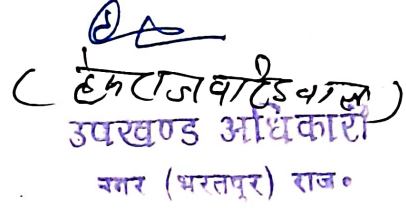 (हेमराज वाटेडवाल)
उपखण्ड अधिकारी
नगर (भरतपुर) राज॰